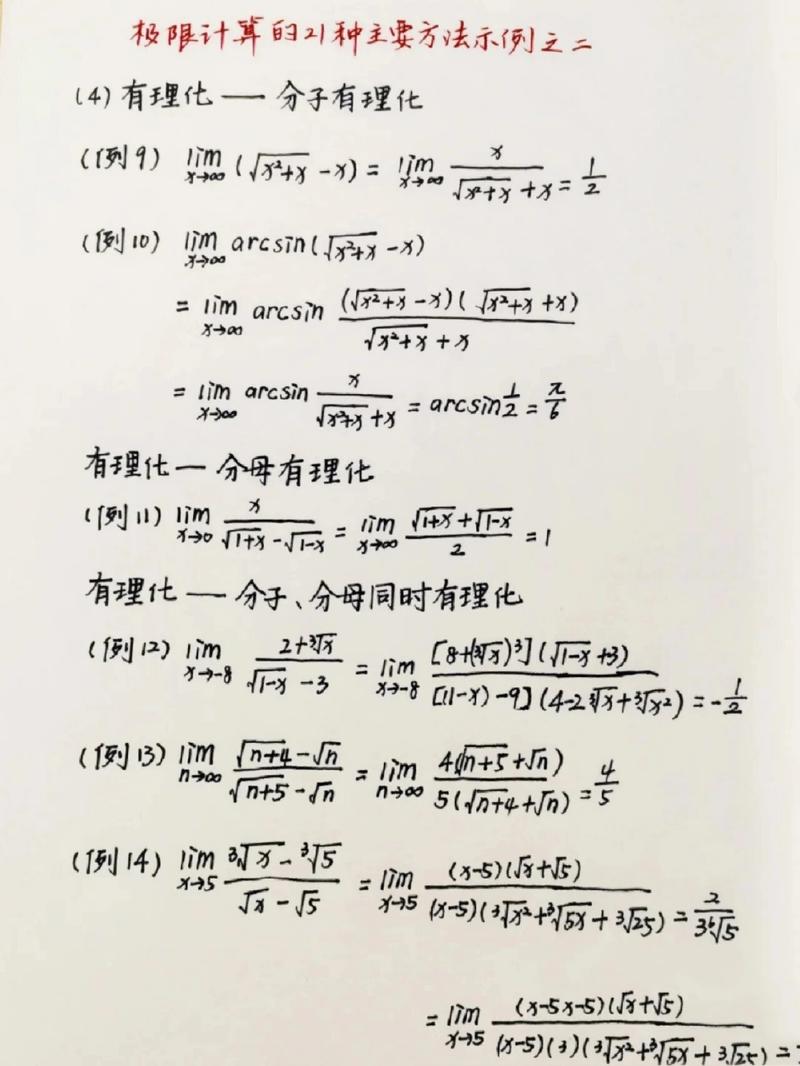 极限计算的21种主要方法示例之二
(4) 有理化 — 分子有理化
(例9) lim x→∞ (√(x²+x) - x) = lim x→∞ x / (√(x²+x) + x) = 1/2
(例10) lim x→∞ arcsin(√(x²+x) - x)
= lim x→∞ arcsin (√(x²+x) - x)(√(x²+x) + x) / (√(x²+x) + x)
= lim x→∞ arcsin x / (√(x²+x) + x) = arcsin 1/2 = π/6
有理化 — 分母有理化
(例11) lim x→0 x / (√(1+x) - √(1-x)) = lim x→∞ (√(1+x) + √(1-x)) / 2 = 1
有理化 — 分子、分母同时有理化
(例12) lim x→-8 (2+∛x) / (√(1-x) - 3) = lim x→-8 [8+(∛x)³](√(1-x) + 3) / [(1-x) - 9](4-2∛x+∛x²) = -1/2
(例13) lim n→∞ (√(n+4) - √n) / (√(n+5) - √n) = lim n→∞ 4(√(n+5) + √n) / 5(√(n+4) + √n) = 4/5
(例14) lim x→5 (∛x - ∛5) / (√x - √5) = lim x→5 (x-5)(√x+√5) / (x-5)(∛x²+∛5x+∛25) = 2 / 3⁶√5
= lim x→5 (x-5x-5)(√x+√5) / (x-5)(3)(∛x²+∛5x+∛25) =